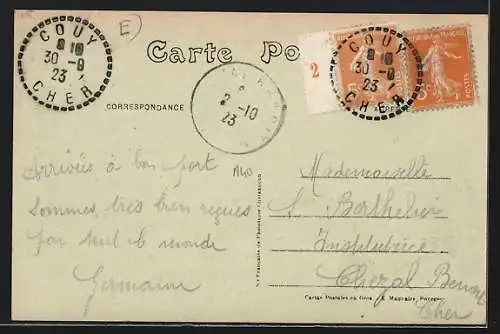 E
COUY
8 10
30-9
23
CHER
Carte Po
2
COUY
8 10
30-9
23
CHER
POSTES
POSTES
CORRESPONDANCE
2-10
23
A40
Arrivées à bon port
sommes très bien reçues
par tout le monde
Germaine
Mademoiselle
S. Berthelier
Institutrice
Chezal Benoit
Cher